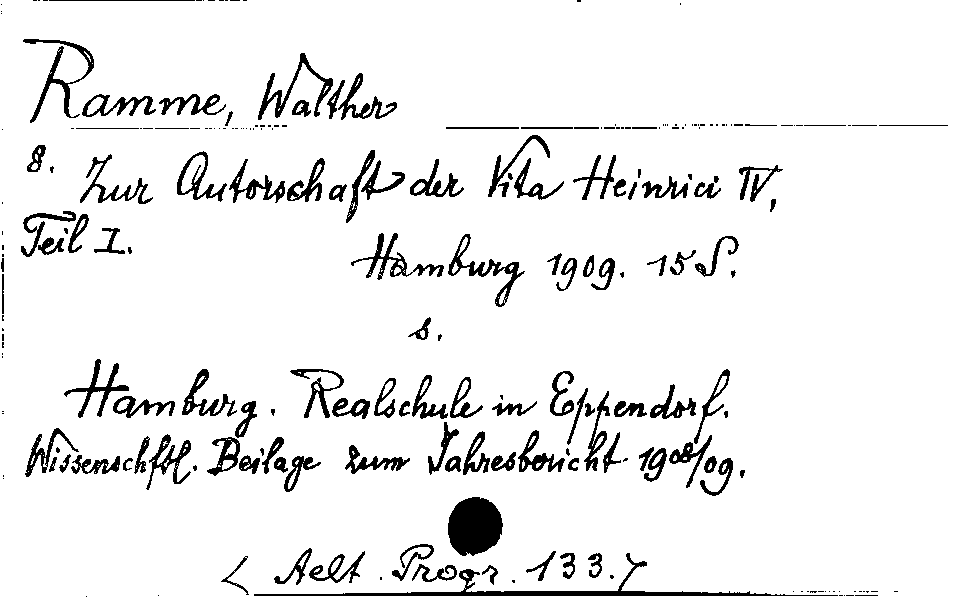 Ramme, Walther
8. Zur Autorschaft der Vita Heinrici IV,
Teil I.
Hamburg 1909. 15 S.
s.
Hamburg. Realschule in Eppendorf.
Wissenschftl. Beilage zum Jahresbericht 1908/09.
< Aelt. Progr. 133. >